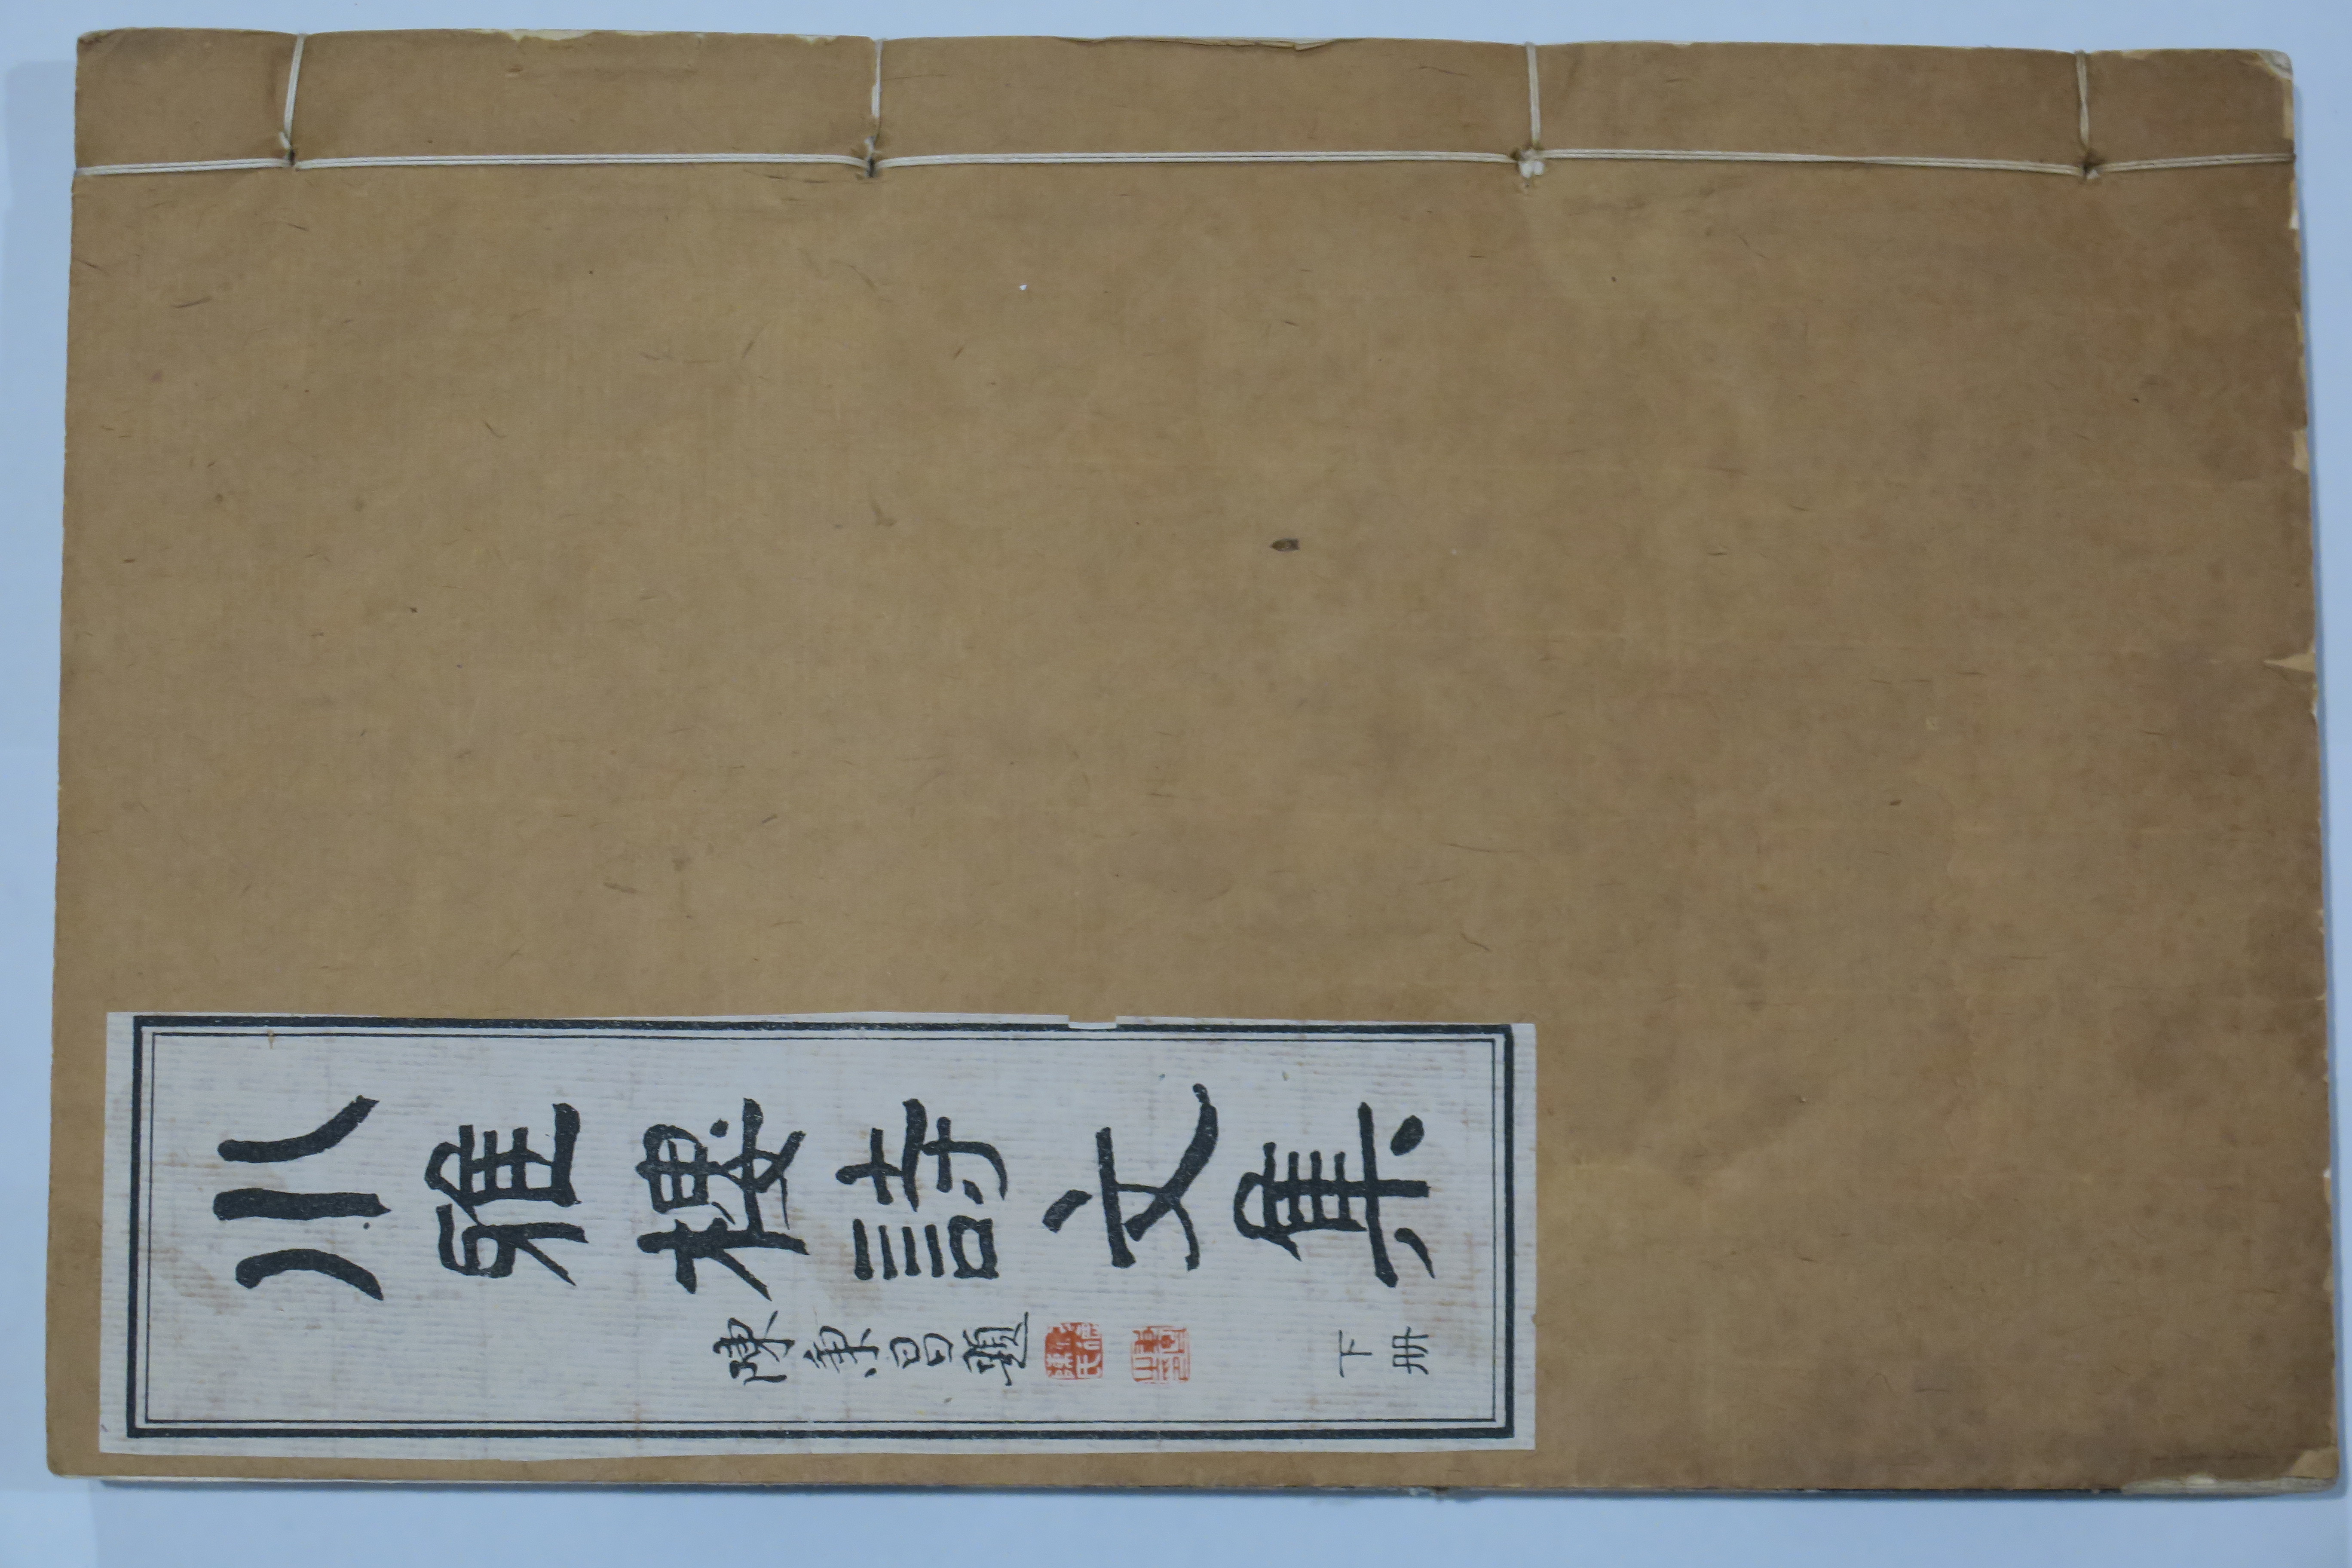 小雅樓詩文集
陳秉昌題
下册